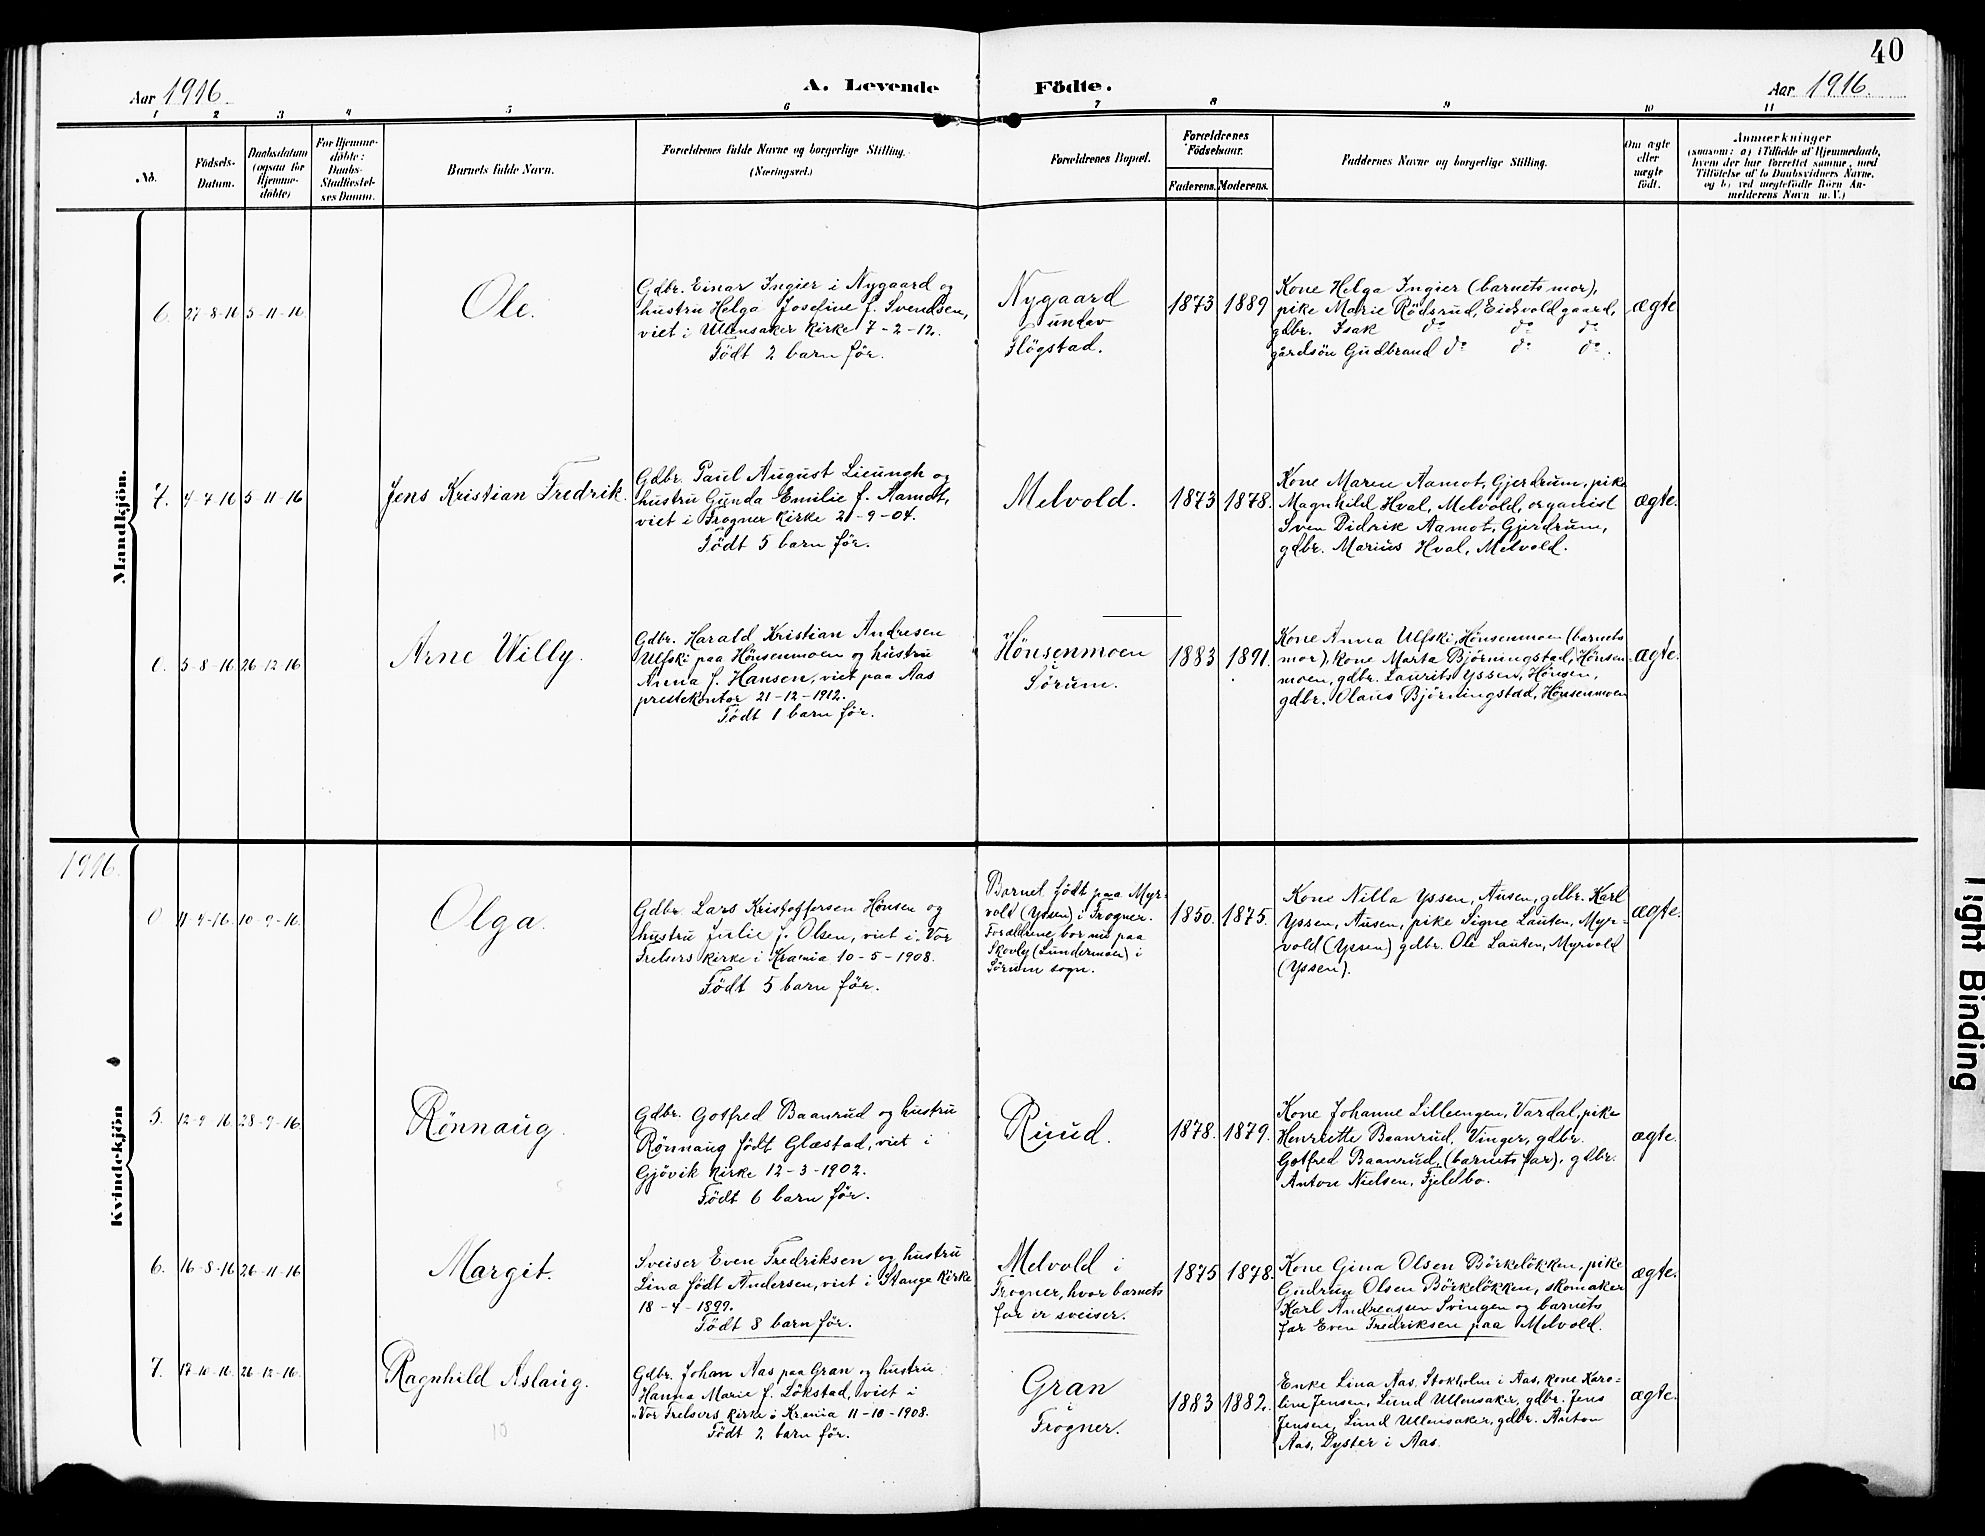 40
Aar 1916.
A. Levende Födte.
Aar 1916.
1 2 3 4 5 6 7 8 9 10 11
No.
Födsels-
Datum.
Daabsdatum
(ogsaa for
Hjemme-
döbte)
For Hjemme-
döbte:
Daabs-
Stadfæstel-
ses Datum.
Barnets fulde Navn.
Forældrenes fulde Navne og borgerlige Stilling.
(Næringsvei.)
Forældrenes Bopæl.
Forældrenes
Födselsaar.
Faderens. Moderens.
Faddernes Navne og borgerlige Stilling.
Om ægte
eller
uægte
födt.
Anmerkninger
(saasom: a) i Tilfælde af Hjemmedaab,
hvem der har forrettet samme, med
Tilföielse af to Daabsvidners Navne,
og b) ved uægtefödte Börn An-
melderens Navn m. V.)
Mandkjön.
6. 27-8-16 5-11-16
Ole.
Gdbr. Einar Ingier i Nygaard og
hustru Helga Josefine f. Svendsen,
viet i Ullensaker kirke 7-2-12.
Födt 2 barn før.
Nygaard
under
Flögstad.
1873 1889
Kone Helga Ingier (barnets mor),
pike Marie Rödsrud, Eidsvold gaard,
gdbr. Isak do do do
gårdsön Gudbrand do do do.
ægte
7. 4-7-16 5-11-16
Jens Kristian Fredrik.
Gdbr. Paul August Lieungh og
hustru Gunda Emilie f. Aamot,
viet i Frogner kirke 21-9-04.
Födt 5 barn før.
Melvold.
1873 1878.
Kone Maren Aamot, Gjerdrum, pike
Magnhild Hval, Melvold, organist
Sven Didrik Aamot, Gjerdrum,
gdbr. Marius Hval, Melvold.
ægte.
5-8-16 26-12-16
Arne Willy.
Gdbr. Harald Kristian Andresen
Ulfski paa Hönsenmoen og hustru
Anna f. Hansen, viet paa Aas
prestekontor 21-12-1912.
Födt 1 barn før.
Hönsenmoen
i
Sörum.
1883 1891.
Kone Anna Ulfski, Hönsenmoen (barnets
mor), kone Marta Björningstad, Hönsen-
moen, gdbr. Laurits Yssen, Hönsen,
gdbr. Olaus Björningstad, Hönsenmoen
ægte.
1916.
Kvindekjön
11-4-16 10-9-16
Olga.
Gdbr. Lars Kristoffersen Hönsen og
hustru Julie f. Olsen, viet i Vor
Frelsers kirke i Krania 10-5-1908.
Födt 5 barn før.
Barnet født paa Myr-
vold (Yssen) i Frogner.
Forældrene bor nu paa
Skovly (Lundermoen) i
Sörum sogn.
1850. 1875.
Kone Nilla Yssen, Ausen, gdbr. Karl
Yssen, Ausen, pike Signe Lauten, Myr-
vold (Yssen) gdbr. Ole Lauten, Myrvold
(Yssen).
ægte.
5. 12-9-16 28-9-16
Rönnaug
Gdbr. Gotfred Baanrud og hustru
Rönnaug född Glæstad, viet i
Gjövik kirke 12-3-1902.
Födt 6 barn før.
Ruud.
1878. 1879.
Kone Johanne Lilleengen, Vardal, pike
Henriette Baanrud, Vinger, gdbr.
Gotfred Baanrud, (barnets far), gdbr.
Anton Nielsen, Fjeldbo.
ægte.
6. 16-8-16 26-11-16
Margit.
Sveiser Even Fredriksen og hustru
Lina født Andersen, viet i Stange kirke
18-4-1899.
Födt 8 barn før.
Melvold i
Frogner, hvor barnets
far er sveiser.
1875 1878.
Kone Gina Olsen Börkelökken, pike
Gudrun Olsen Börkelökken, skomaker
Karl Andreassen Svingen og barnets
far Even Fredriksen paa Melvold.
ægte.
7. 17-10-16 26-12-16
Ragnhild Aslaug.
Gdbr. Johan Aas paa Gran og hustru
Hanna Marie f. Lökstad, viet i
Vor Frelsers kirke i Krania 11-10-1908.
Födt 2 barn før.
Gran
i
Frogner.
1883 1882.
Enke Lina Aas, Stokholm i Aas, kone Karo-
line Jensen, Lund Ullensaker, gdbr. Jens
Jensen, Lund Ullensaker, gdbr. Anton
Aas, Dyster i Aas.
ægte.
10
Tight Binding